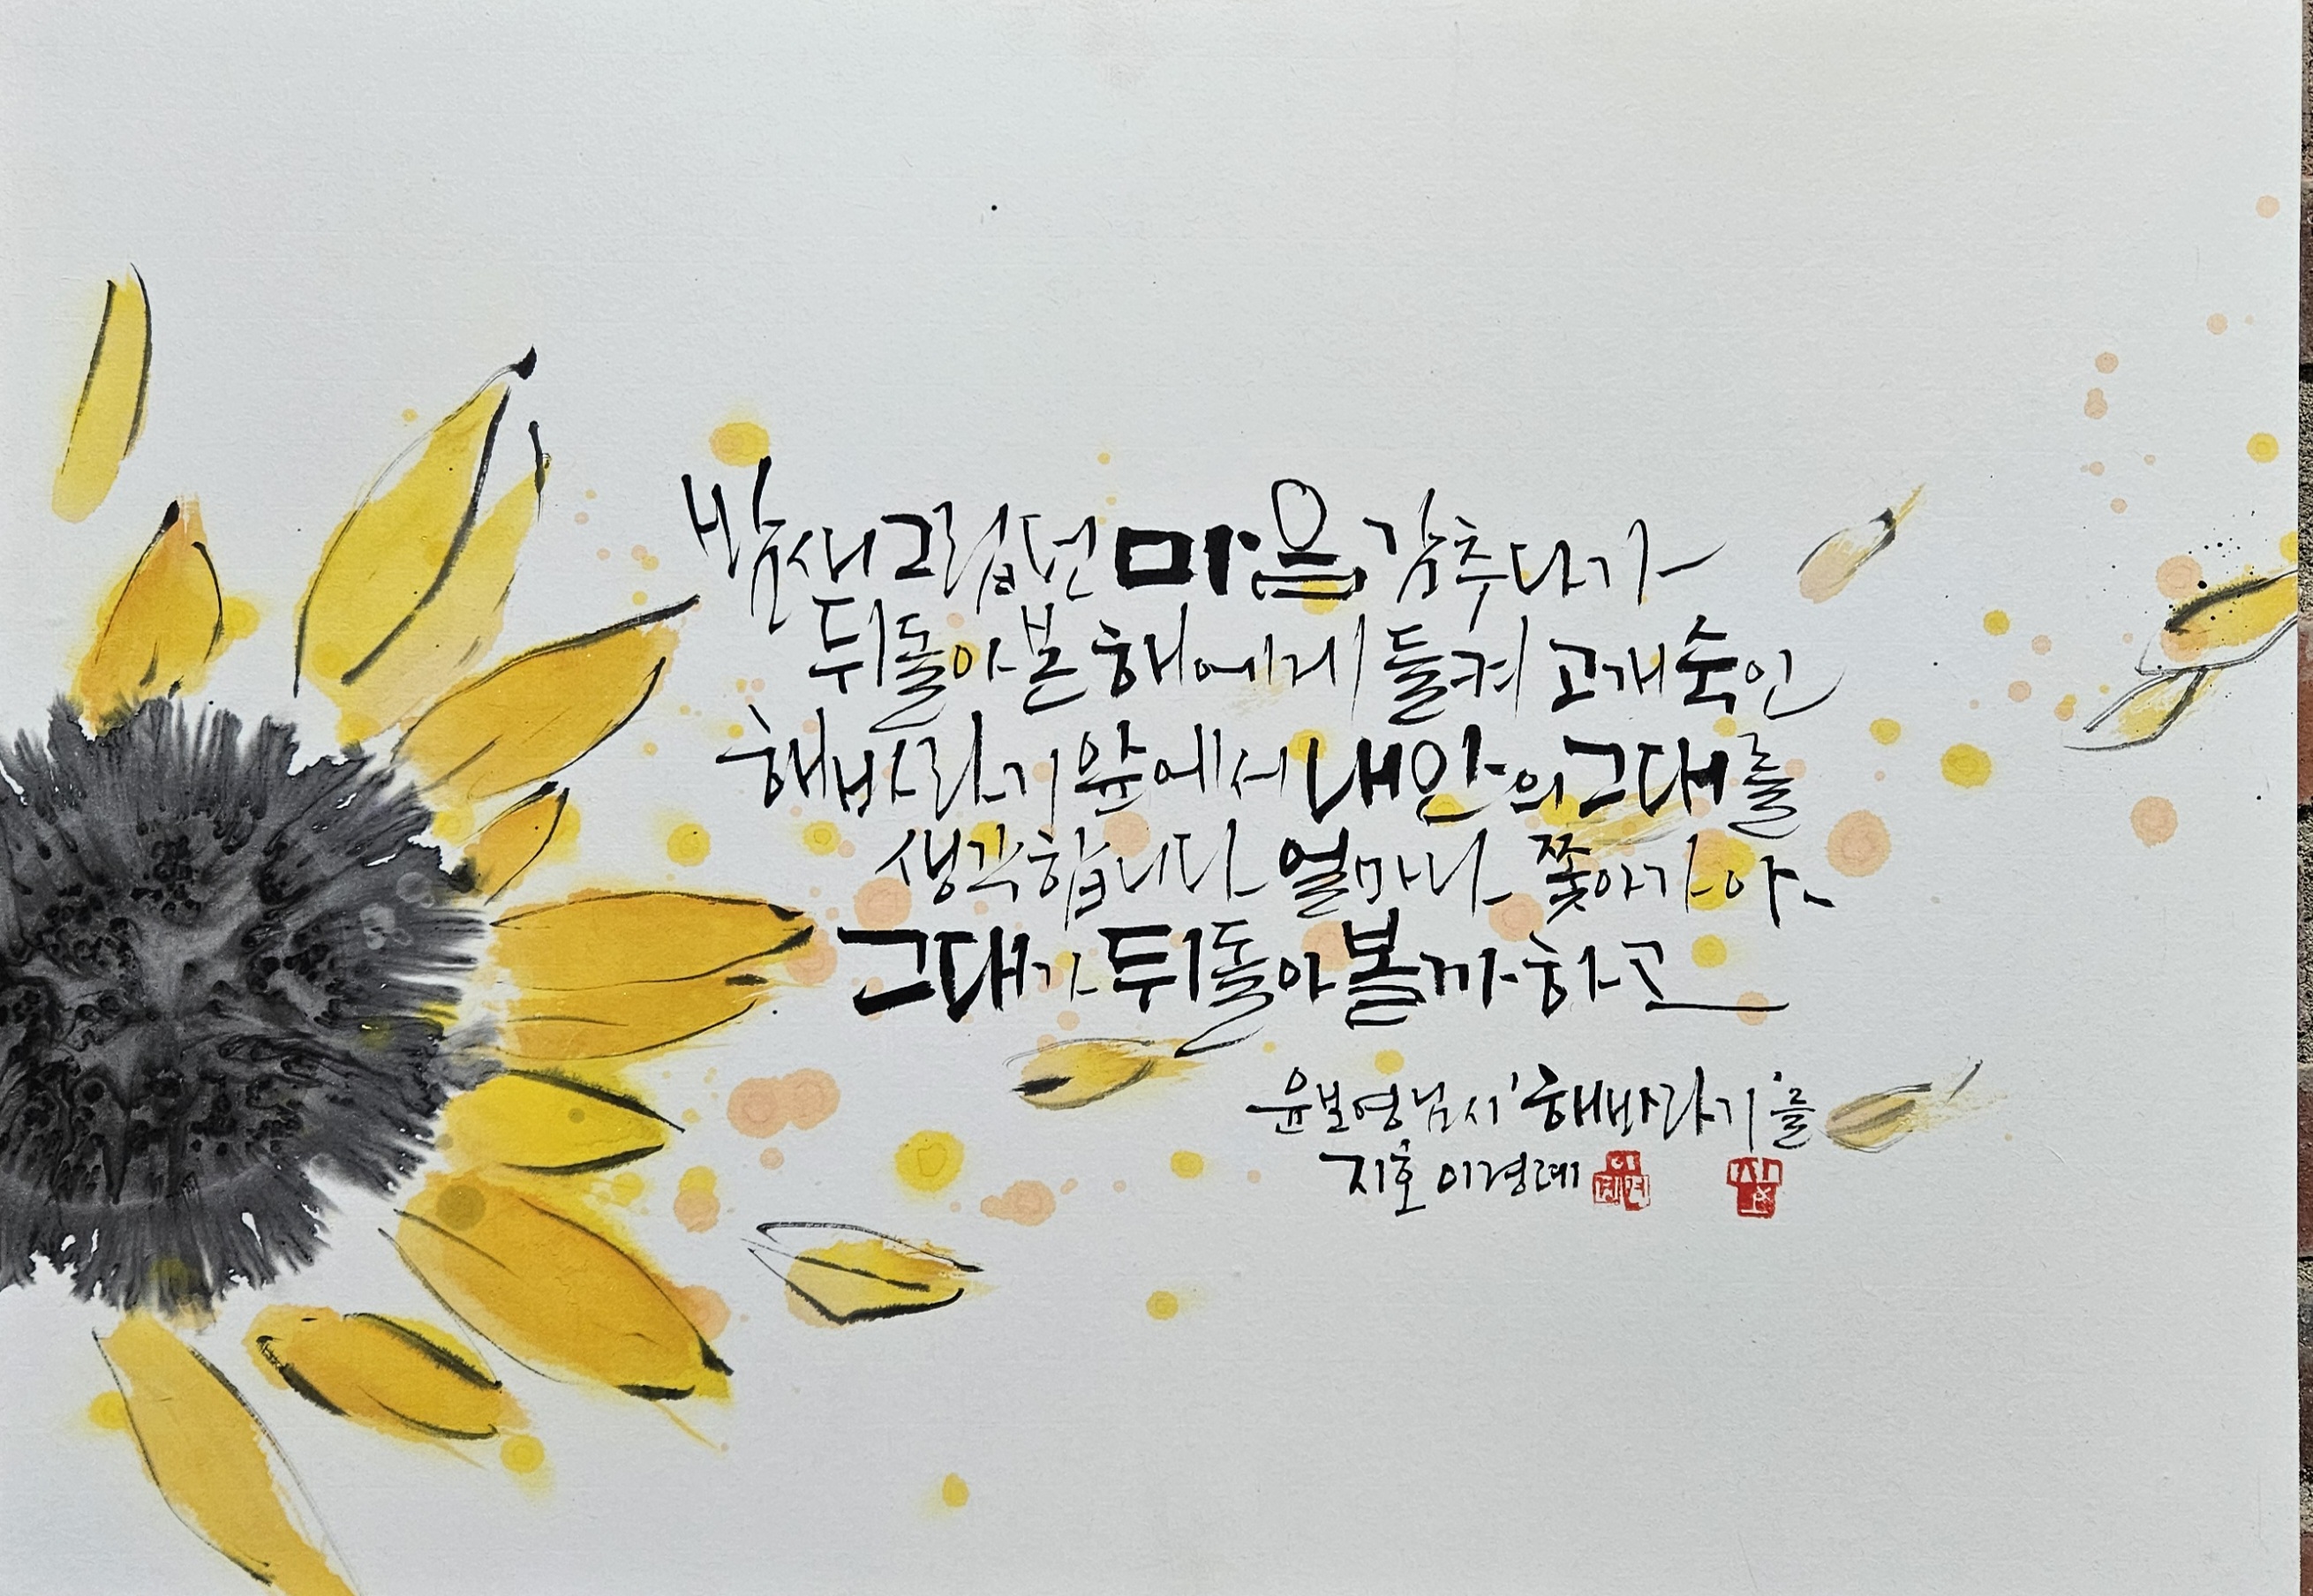 밤새 그립던 마음 감추다가
뒤돌아본 해에게 들켜 고개숙인
해바라기 앞에서 내안의 그대를
생각합니다 얼마나 쫓아가야
그대가 뒤돌아볼까 하고
윤보영님 시 '해바라기'를
지호 이경례